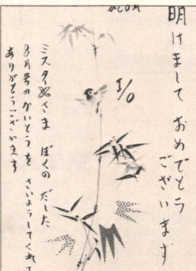 明けまして おめでとう
ございます
I/O
ミスターXさま ぼくの だした
8月号のかいとうを さいようしてくれて
ありがとうございます